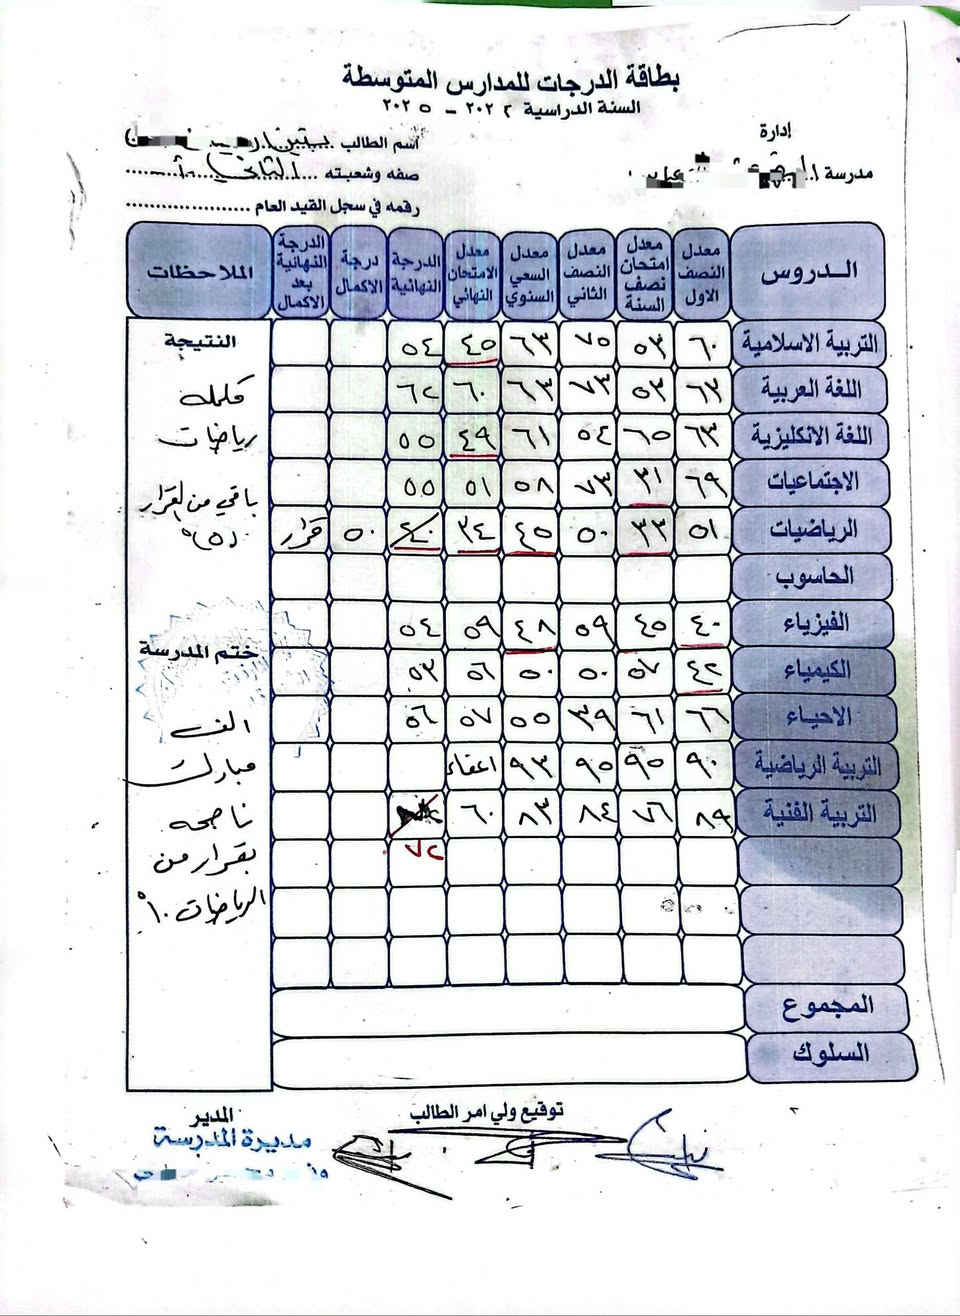 بطاقة الدرجات للمدارس المتوسطة
السنة الدراسية ٢٠٢٤ - ٢٠٢٥
إدارة
مدرسة
اسم الطالب
صفه وشعبته الثاني أ
رقمه في سجل القيد العام
الدروس معدل النصف الاول معدل امتحان نصف السنة معدل النصف الثاني معدل السعي السنوي معدل الامتحان النهائي الدرجة النهائية درجة الاكمال الدرجة النهائية بعد الاكمال الملاحظات
التربية الاسلامية ٦٠ ٥٣ ٧٥ ٦٣ ٤٥ ٥٤
اللغة العربية ٦٣ ٥٣ ٧٣ ٦٣ ٦٠ ٦٢
اللغة الانكليزية ٦٣ ٦٥ ٥٤ ٦١ ٤٩ ٥٥
الاجتماعيات ٦٩ ٣١ ٧٣ ٥٨ ٥١ ٥٥
الرياضيات ٥١ ٣٣ ٥٠ ٤٥ ٣٤ ٤٠ ٥٠ قرار
الحاسوب
الفيزياء ٤٠ ٤٥ ٥٩ ٤٨ ٥٩ ٥٤
الكيمياء ٤٢ ٥٧ ٥٠ ٥٠ ٥٦ ٥٣
الاحياء ٦٦ ٦١ ٣٩ ٥٥ ٥٧ ٥٦
التربية الرياضية ٩٠ ٩٥ ٩٥ ٩٣ اعفاء
التربية الفنية ٨٩ ٧٦ ٨٤ ٨٣ ٦٠
٧٢
المجموع
السلوك
النتيجة
مكمله
رياضيات
باقي من القرار
ختم المدرسة
الف
مبارك
ناجحه
بقرار من
الرياضيات ١٠
توقيع ولي امر الطالب
المدير
مديرة المدرسة